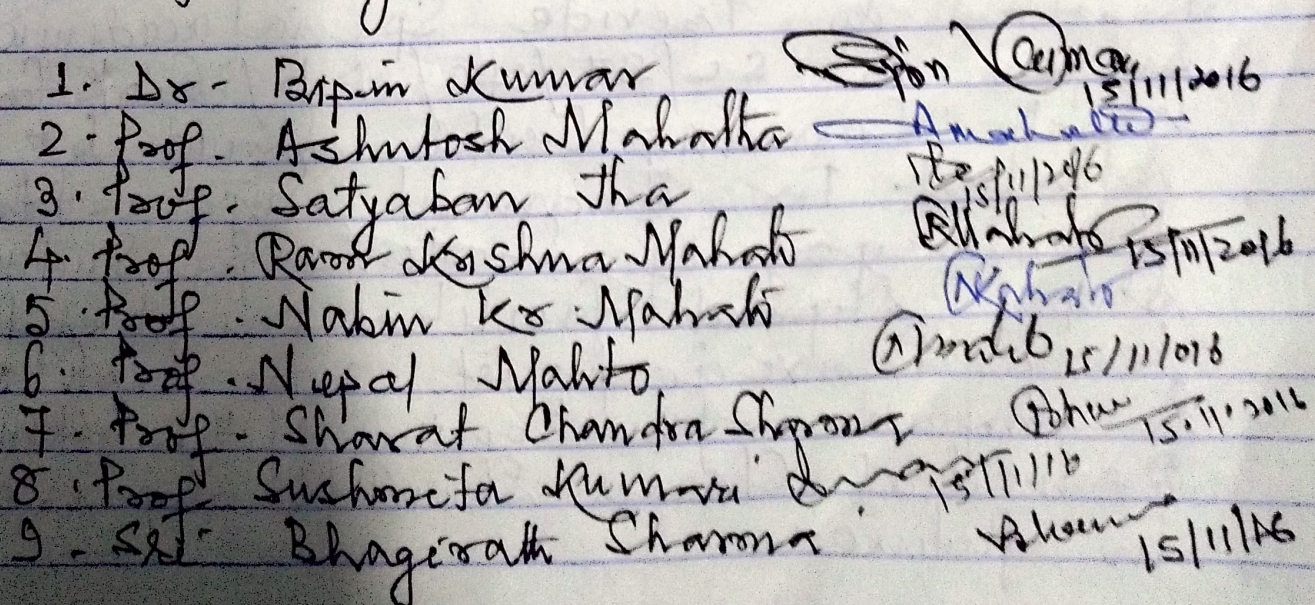 1. Dr - Bipin Kumar 15/11/2016
2 - Prof. Ashutosh Mahatha Amahatha
3. Prof. Satyaban Jha 15/11/2016
4. Prof. Ram Krishna Mahato RKMahato 15/11/2016
5. Prof. Nabin Kr. Mahato NKMahato
6. Prof. Nepal Mahto 15/11/016
7. Prof. Sharat Chandra Sharma 15.11.2016
8. Prof Sushmita Kumari 15/11/16
9. Sri Bhagirath Sharma 15/11/16